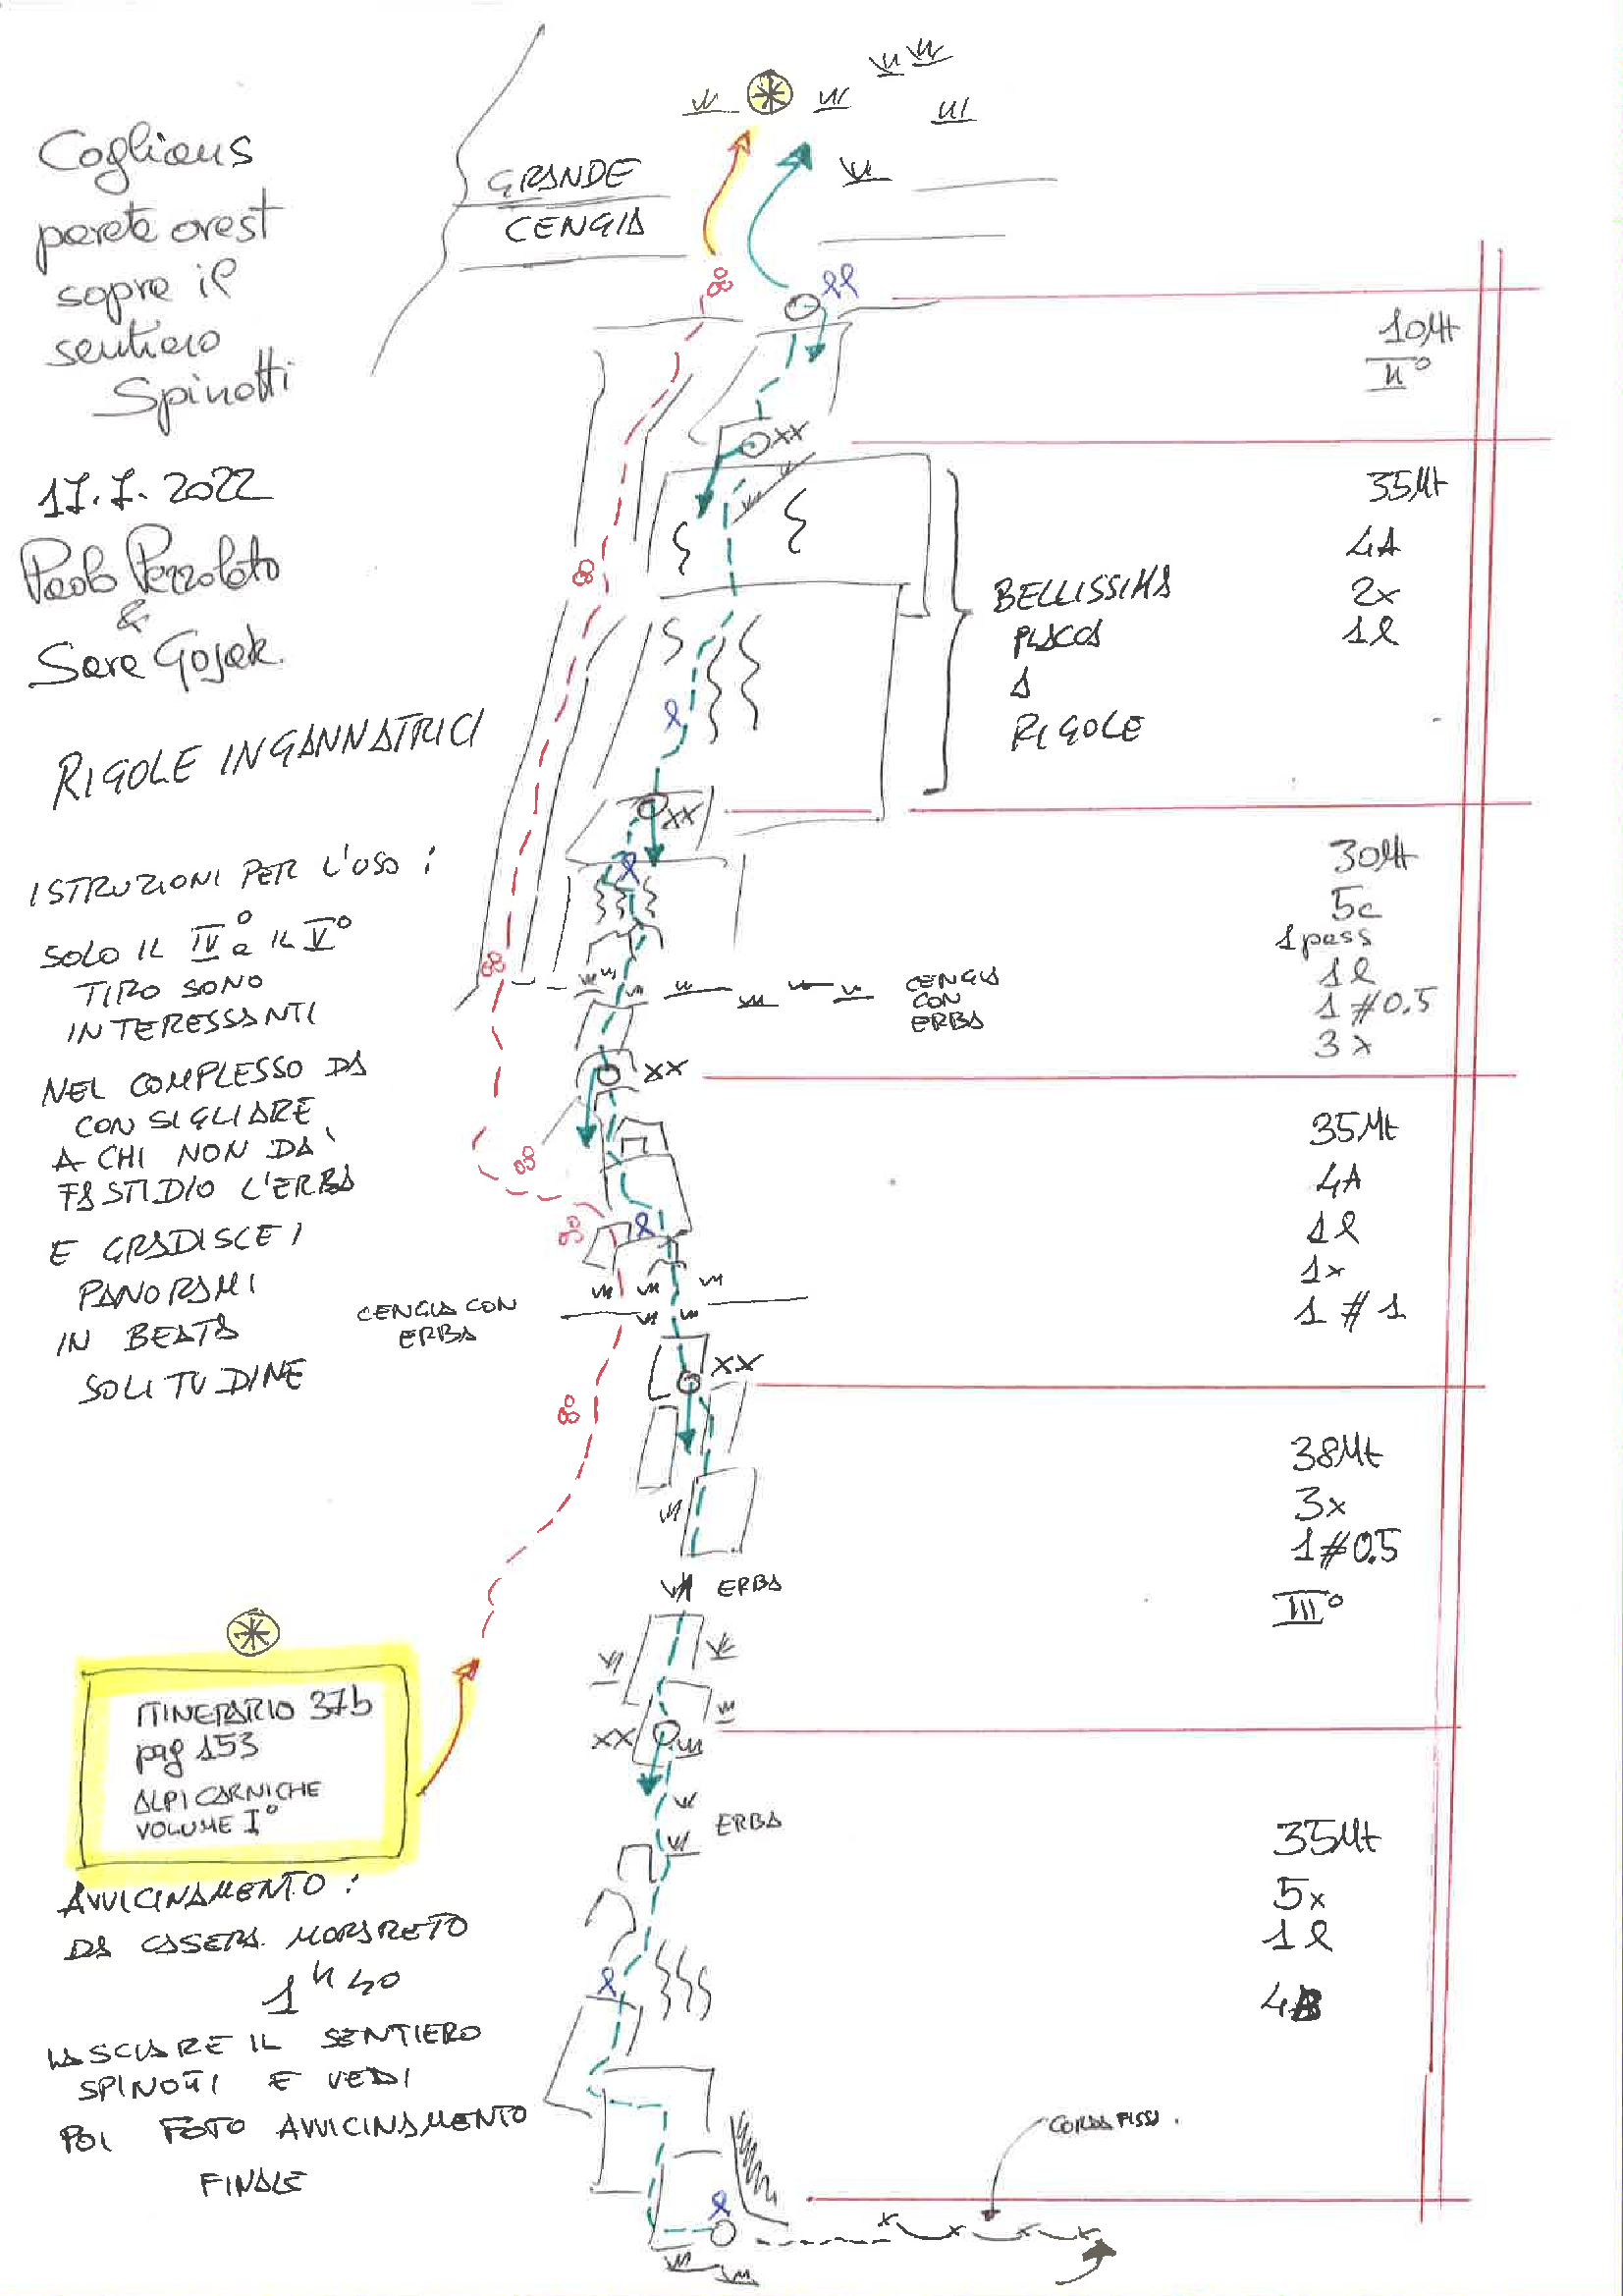 Coglians
parete ovest
sopra il
sentiero
Spinotti
17.7.2022
Paolo Pezzolato
&
Sara Gojak.
RIGOLE INGANNATRICI
ISTRUZIONI PER L'USO:
SOLO IL IV° e IL V°
TIRO SONO
INTERESSANTI
NEL COMPLESSO DA
CONSIGLIARE
A CHI NON DA'
FASTIDIO L'ERBA
E GRADISCE I
PANORAMI
IN BEATA
SOLITUDINE
ITINERARIO 37b
pag 153
ALPI CARNICHE
VOLUME I°
AVVICINAMENTO:
DA CASERA MORARETO
1h40
LASCIARE IL SENTIERO
SPINOTTI E VEDI
POI FOTO AVVICINAMENTO
FINALE
GRANDE
CENGIA
10Mt
II°
XX
35Mt
4A
2x
1l
BELLISSIMA
PLACCA
A
RIGOLE
XX
30Mt
5c
1pass
1l
1 #0.5
3x
CENGIA
CON
ERBA
XX
35Mt
4A
1l
1x
1 #1
CENGIA CON
ERBA
XX
38Mt
3x
1#0.5
III°
ERBA
XX
ERBA
35Mt
5x
1l
4B
CORDA FISSA.